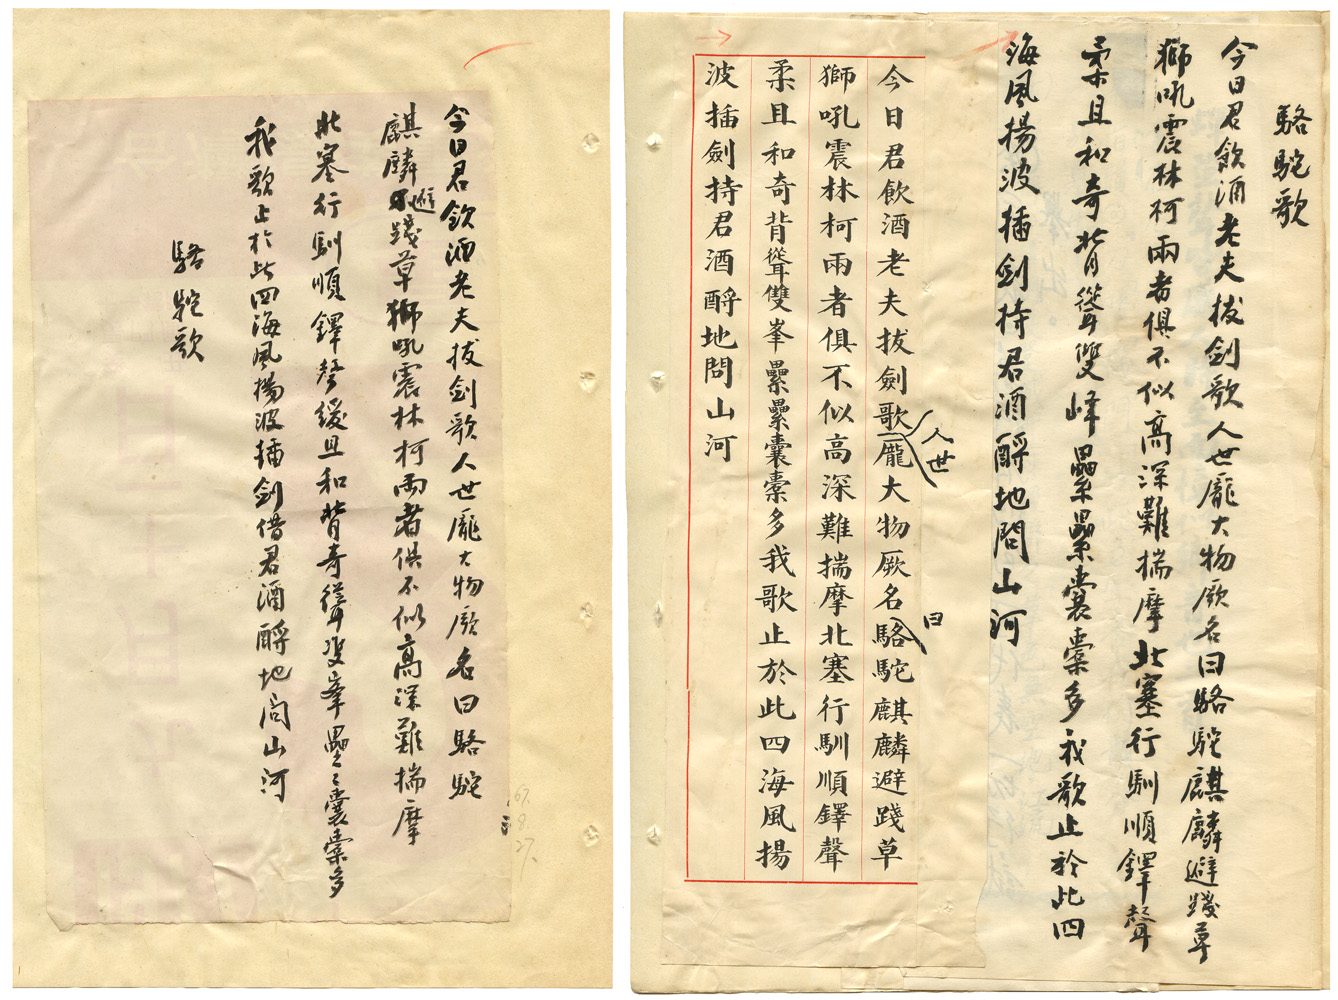 駱駝歌
今日君飲酒老夫拔剑歌人世龐大物厥名曰駱駝麒麟避踐草
獅吼震林柯兩者俱不似高深難揣摩北塞行馴順鐸聲
柔且和奇背聳雙峰纍纍囊橐多我歌止於此四
海風揚波插剑持君酒酹地問山河
人世
曰
今日君飲酒老夫拔劍歌龐大物厥名駱駝麒麟避踐草
獅吼震林柯兩者俱不似高深難揣摩北塞行馴順鐸聲
柔且和奇背聳雙峯纍纍囊橐多我歌止於此四海風揚
波插劍持君酒酹地問山河
今日君飲酒老夫拔剑歌人世龐大物厥名曰駱駝
麒麟避踐草獅吼震林柯兩者俱不似高深難揣摩
北塞行馴順鐸聲緩且和背奇聳雙峯纍々囊橐多
我歌止於此四海風揚波插剑借君酒酹地問山河
駱駝歌
67.
8.
27.